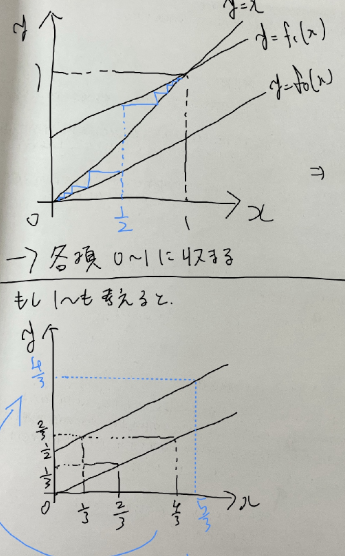 y
y=x
y=f₁(x)
y=f₀(x)
1
⇒
0
1/2
1
x
→ 各項 0~1に収まる
もし 1~も考えると.
y
4/3
2/3
1/2
1/3
0
1/3
2/3
4/3
5/3
x